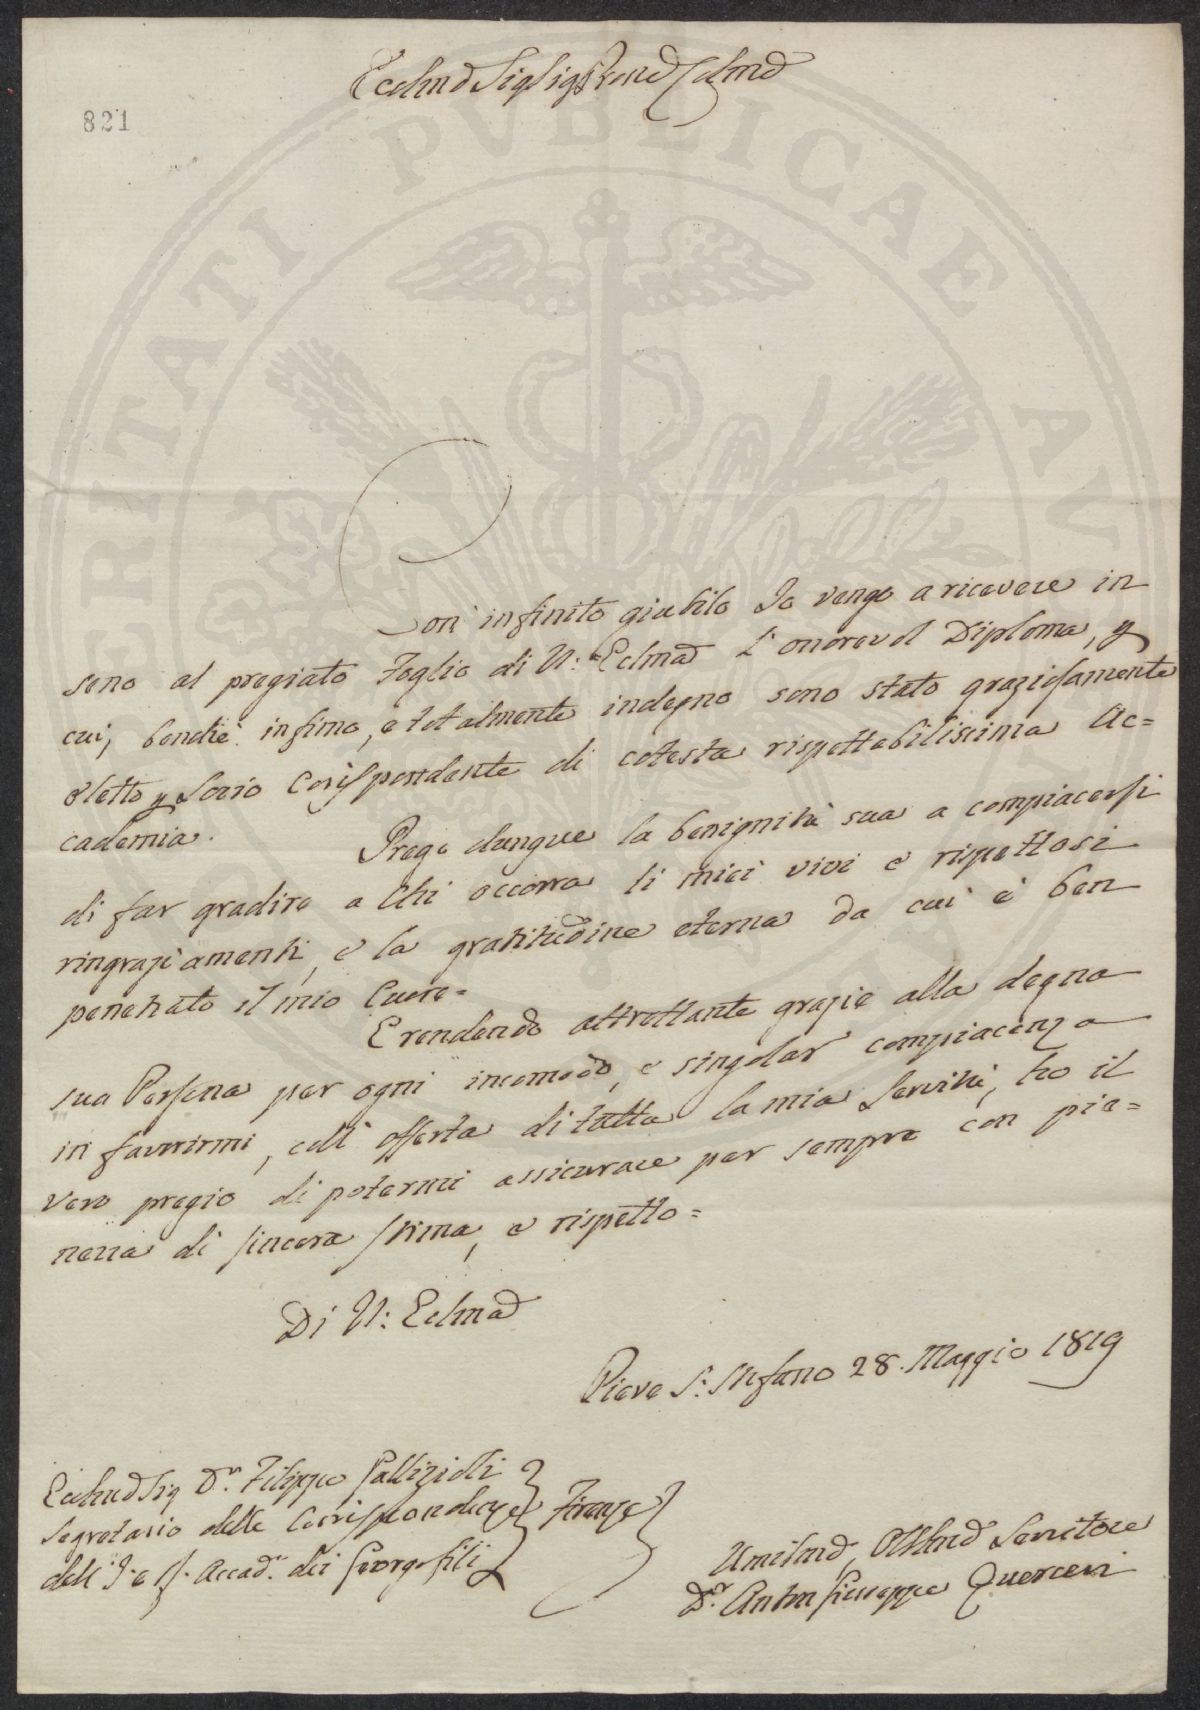 Eccelmo Sig Sig Prone Colmo
821
PROSPERITATI PVBLICAE AV
Con infinito giubilo Io vengo a ricevere in
seno al pregiato Foglio di V: Eclma l'onorevol Diploma, p
cui, benchè infimo, e totalmente indegno sono stato graziosamente
eletto p Socio Corrispondente di cotesta rispettabilissima Ac=
cademia.
Prego dunque la benignità sua a compiacersi
di far gradire a Chi occorra li miei vivi e rispettosi
ringraziamenti, e la gratitudine eterna da cui è ben
penetrato il mio Cuore=
E rendendo altrettante grazie alla degna
sua Persona per ogni incomodo, e singolar compiacenza
in favorirmi, coll'offerta di tutta la mia Servitù, ho il
vero pregio di potermi assicurare per sempre con pie=
nezza di sincera stima, e rispetto=
Di V: Eclma
Pieve S: Stefano 28. Maggio 1819
Eccelmo Sig Dr. Filippo Gallizioli
Segretario delle Corrispondenze Firenze
dell'I. e R. Accad. dei Georgofili
Umilmo, Obblmo Servitore
Dr. Anton Giuseppe Querceri